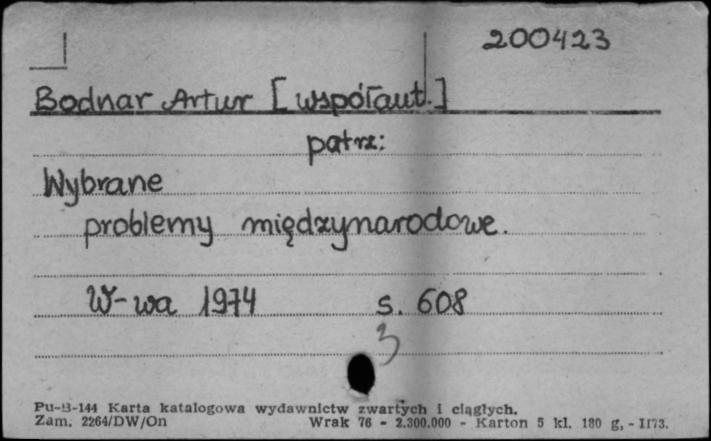 200423
Bodnar Artur [współaut.]
patrz:
Wybrane
problemy międzynarodowe.
W-wa 1974 s. 608
3
Pu-B-144 Karta katalogowa wydawnictw zwartych i ciągłych.
Zam. 2264/DW/On Wrak 76 - 2.300.000 - Karton 5 kl. 180 g, - II73.